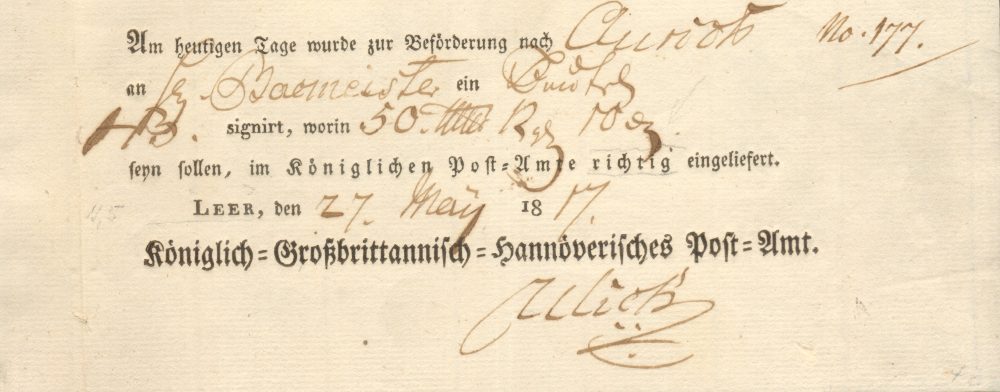 Am heutigen Tage wurde zur Beförderung nach Aurich No. 177.
an Baemeister ein
signirt, worin 50
seyn sollen, im Königlichen Post-Amte richtig eingeliefert.
LEER, den 27. May 1817.
Königlich-Großbrittannisch-Hannöverisches Post-Amt.